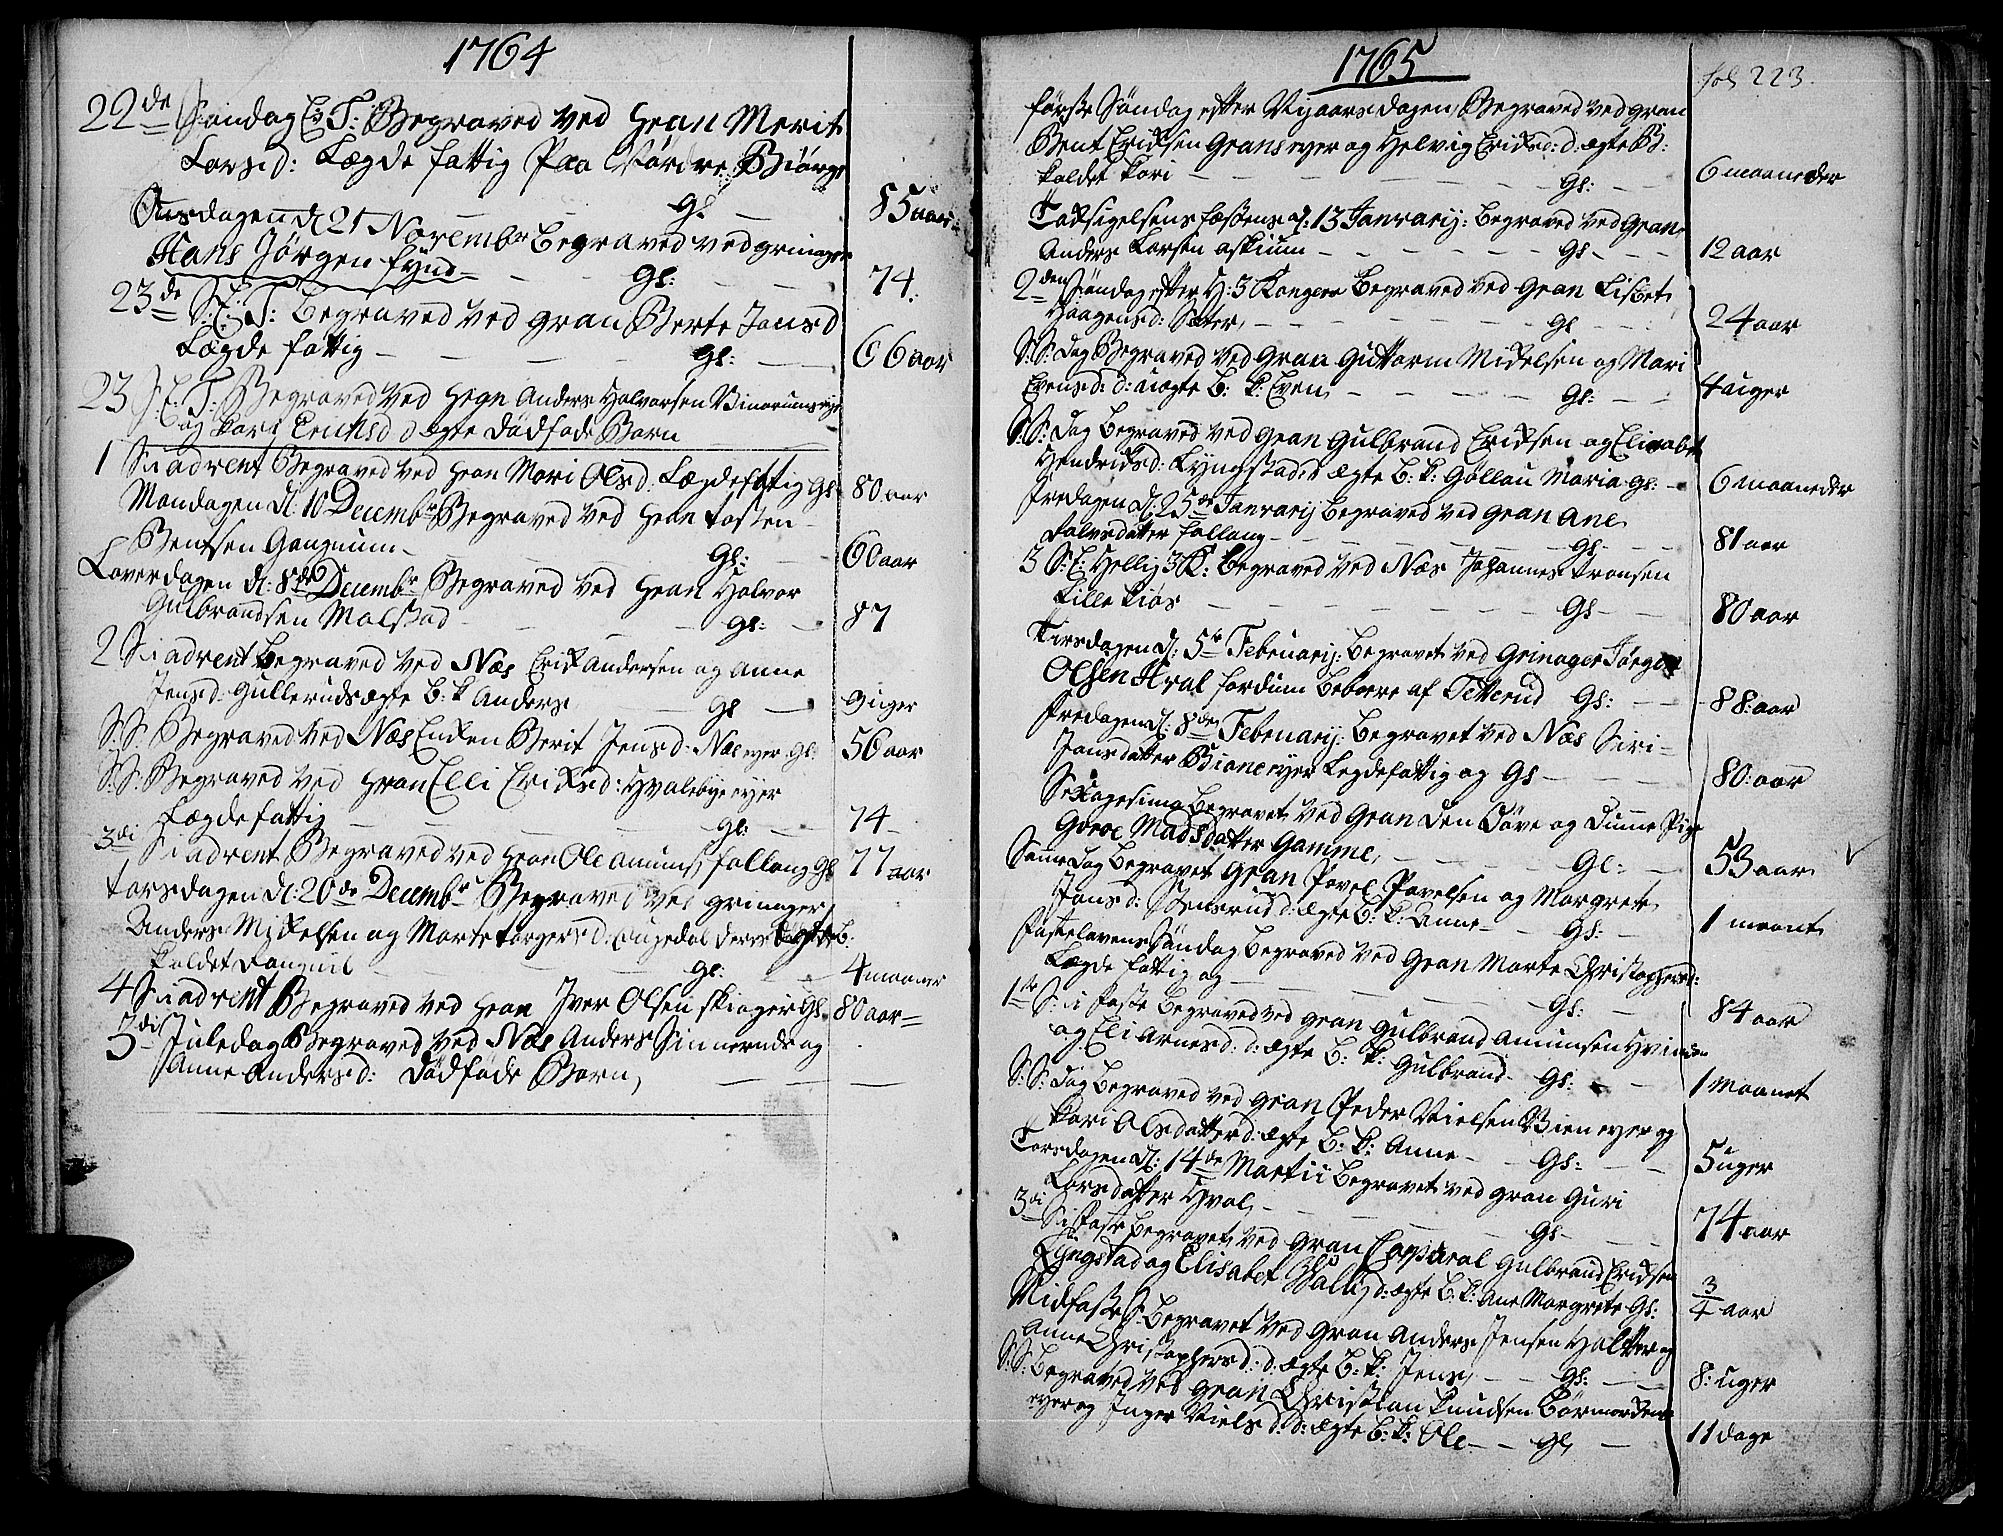 1764
22de Søndag E: T: Begraved ved Gran Merit
Larsd: Lægde fattig Paa Nørdre Biørge
Gl — 85 aar
Onsdagen d 21 Novembr Begraved ved grinager
Hans Jørgen Fynd — Gl: — 74.
23de S: E: T: Begraved ved Gran Berte Jansd
Lægde fattig — Gl: — 66 aar
23 S: E: T: Begraved ved Gran Anders Halvorsen
og Kari Erichsd d ægte Dødføde Barn
1 S: i advent Begraved ved Gran Mari Olsd: Lægdefattig Gl: 80 aar
Mandagen d: 10 Decembr Begraved ved Gran Tosten
Bentsen Gangnum — Gl: — 60 aar
Løverdagen d: 8de Decembr Begraved ved Gran Halvor
Gulbrandsen Molstad — gl: — 87
2 S: i advent Begraved ved Næs Erik Andersen og Anne
Jensd: Gullerud ægte B: k Anders — Gl — 9 uger
S: S: Begraved ved Næs Enken Berit Jensd: Næs eyer Gl: 56 aar
S: S: Begraved ved Gran Elli Eriksd: Hvalebye eyer
Lægdefattig — gl: — 74
3di S: i advent Begraved ved Gran Ole Amunds: Fallang Gl 77 aar
Torsdagen d: 20de Decembr Begraved ved grinager
Anders Mikelsen og Marte Torgersd: deres ægte B:
kaldet — Gl: — 4 maaner
4 S: i advent Begraved ved Gran Iver Olsen Skiager Gl. 80 aar
3di Juledag Begraved ved Næs Anders Sinnerud og
Anne Andersd: Dødføde Barn,
1765
fol 223.
Første Søndag efter Nyaarsdagen, Begraved ved Gran
Bent Eriksen Grans eyer og Helvig Eriksd: d: ægte B:
kaldet Kari — Gl: — 6 maaneder
Taksigelsens festens d: 13 Januarij: Begraved ved Gran
Anders Larsen Askium — Gl — 12 aar
2den Søndag efter H: 3 Kongers Begraved ved Gran Lisbet
Haagensd: Sæter, — Gl — 24 aar
S: S: Dag Begraved ved Gran Guttorm Mikelsen og Mari
Evensd: d: uægte B: k: Even — Gl: — 4 uger
S: S: Dag Begraved ved Gran Gulbrand Eriksen og Elisabet
Hendriksd: Lyngstad d: ægte B: k: Gollau Maria Gl: — 6 maaneder
Fredagen d: 25de Januarij Begraved ved Gran Ane
Falvsdatter Fallang — Gl — 81 aar
3 S: E: Hellig 3 K: Begraved ved Næs Johannes Tronsen
Lille Kiøs — Gl — 80 aar
Tirsdagen d: 5te Februarij: Begravet ved Grinager Jørgen
Olsen Hval fordum Beboere af Tetterud Gl: — 88: aar
Fredagen d: 8de Februarij: Begravet ved Næs Siri
Jansdatter Bione eyer Legdefattig og Gl — 80: aar
Sexagesima Begravet ved Gran den Døve og Dumme Pige
Goroe Madsdatter Gamme, — Gl: — 53 aar
Samme Dag Begravet Gran Povel Povelsen og Margrete
Jansd: d: ægte B: k: Anne — Gl: — 1 maanet
Fastelavens Søndag Begraved ved Gran Marte Christophersd:
Lægde fattig og — Gl: — 84 aar
1te S: i Faste Begraved ved Gran Gulbrand Amunsen Hvinden
og Eli Arnesd: d: ægte B: k: Gulbrand — Gl: — 1 maanet
S: S: Dag Begraved ved Gran Peder Nielsen Bien eyer og
Kari Olsdatter d: ægte B: k: Anne — Gl: — 5 uger
Torsdagen d: 14de Martii Begravet ved Gran Guri
Larsdatter Hval, — Gl — 74 aar
3di S: i Faste Begravet ved Gran Copporal Gulbrand Eriksen
Lyngstad og Elisabet d: ægte B: k: Ane Margrete Gl: 3/4 aar
Midfaste S: Begravet ved Gran Anders Jensen Haltter og
Anne Christophersd: d: ægte B: k: Jens, — Gl: — 8: uger
S: S: Begraved ved Gran Christian Knudsen
eyer og Inger Nielsd: d: ægte B: k: Ole — Gl, — 11 dage